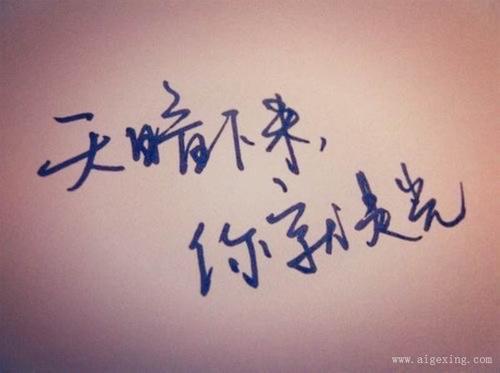 天暗下来，
你就是光
www.aigexing.com